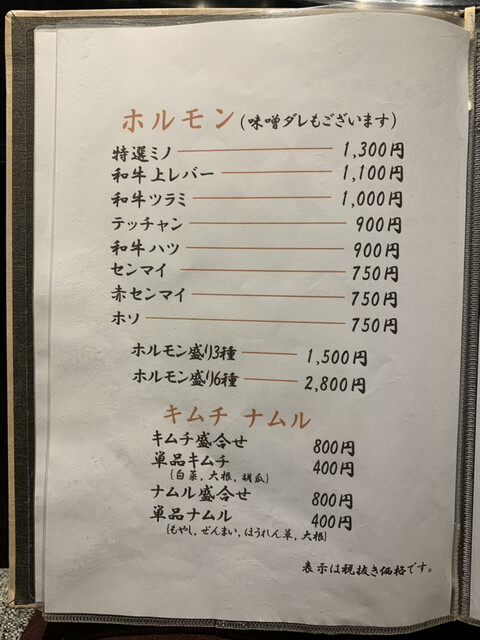 ホルモン(味噌ダレもございます)
特選ミノ 1,300円
和牛上レバー 1,100円
和牛ツラミ 1,000円
テッチャン 900円
和牛ハツ 900円
センマイ 750円
赤センマイ 750円
ホソ 750円
ホルモン盛り3種 1,500円
ホルモン盛り6種 2,800円
キムチ ナムル
キムチ盛合せ 800円
単品キムチ 400円
(白菜、大根、胡瓜)
ナムル盛合せ 800円
単品ナムル 400円
(もやし、ぜんまい、ほうれん草、大根)
表示は税抜き価格です。